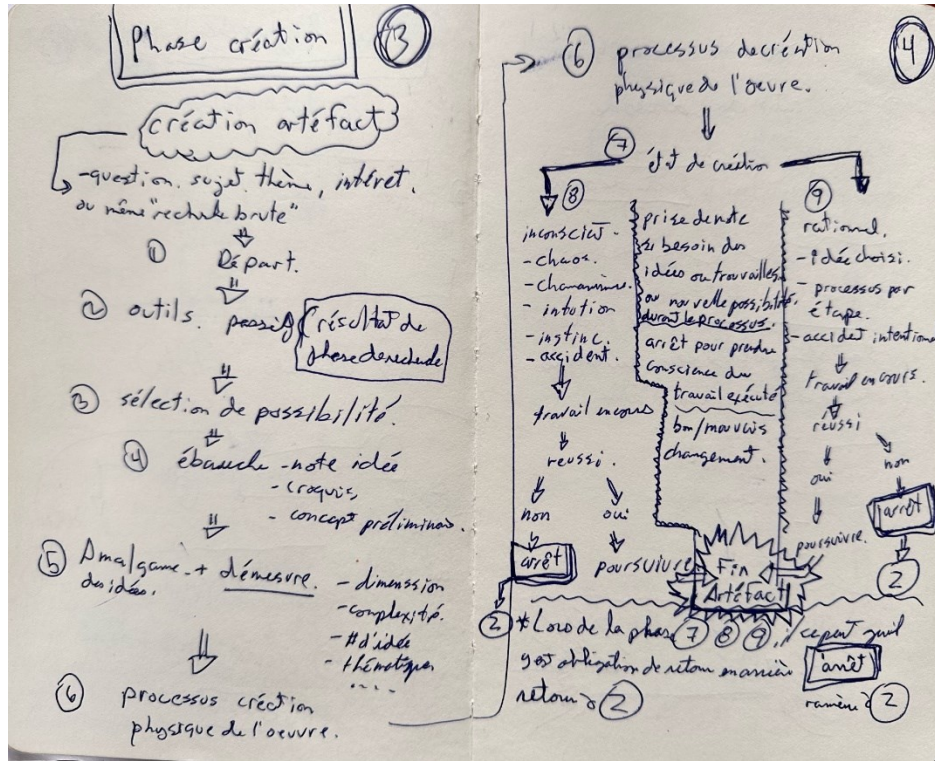 Phase création
3
création artéfact
-question. sujet. thème, intéret.
ou même "recherche brute"
1 Départ.
2 outils. passif (résultat de
phase de recherche
3 sélection de possibilité.
4 ébauche -note idée
- croquis,
- concept préliminair.
5 Amalgame + démesure. - dimenssion
des idées. -complexité.
- # d'idée
- thématiques
....
6 processus création
physique de l'oeuvre.
4
6 processus de création
physique de l'oeuvre.
7 état de création
8
inconscient-
- chaos.
- chamanisme.
- intution
- instinc.
- accident.
travail en cours
reussi.
non oui
arrêt poursuivre
2
prise de note
si besoin des
idées ou trouvailles
ou nouvelle possibilité,
durant le processus.
arrêt pour prendre
conscience du
travail exécuté
bon/mauvais
changement.
9
rationnel.
- idée choisi.
- processus par
étape.
- accident intentionel
travail en cours.
réussi
oui non
poursuivre. arrêt
2
Fin
Artéfact
* Lors de la phase 7 8 9, il
y est obligation de retour en arrière
retour à 2
l'arrêt
ramène à 2